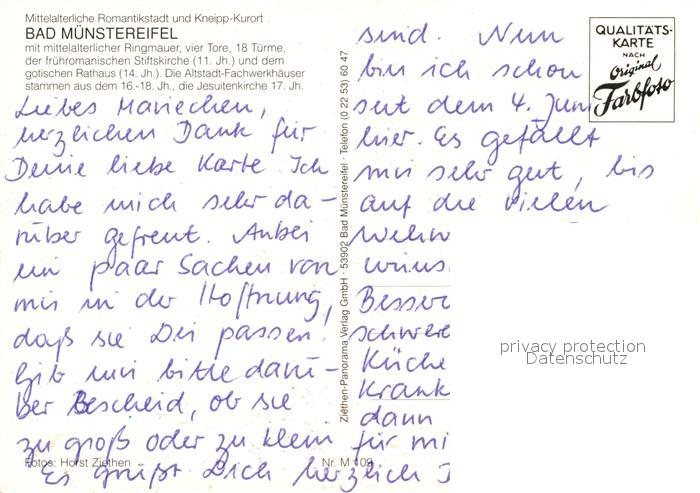 Mittelalterliche Romantikstadt und Kneipp-Kurort
BAD MÜNSTEREIFEL
mit mittelalterlicher Ringmauer, vier Tore, 18 Türme,
der frühromanischen Stiftskirche (11. Jh.) und dem
gotischen Rathaus (14. Jh.). Die Altstadt-Fachwerkhäuser
stammen aus dem 16.-18. Jh., die Jesuitenkirche 17. Jh.
Liebes Mariechen,
herzlichen Dank für
Deine liebe Karte Ich
habe mich sehr da-
rüber gefreut. Anbei
ein paar Sachen von
mir in der Hoffnung,
daß sie Dir passen!
Gib mir bitte darü-
ber Bescheid, ob sie
zu groß oder zu klein
Fotos: Horst Ziethen
Nr. M 109
Es grüßt Dich herzlich
Ziethen-Panorama Verlag GmbH · 53902 Bad Münstereifel · Telefon (0 22 53) 60 47
sind. Nun
bin ich schon
seit dem 4. Juni
hier. Es gefällt
mir sehr gut, bis
auf die vielen
Wehw
Besser
schwere
Küche
Krank
dann
für mi
QUALITÄTS-
KARTE
NACH
Original
Farbfoto
privacy protection
Datenschutz